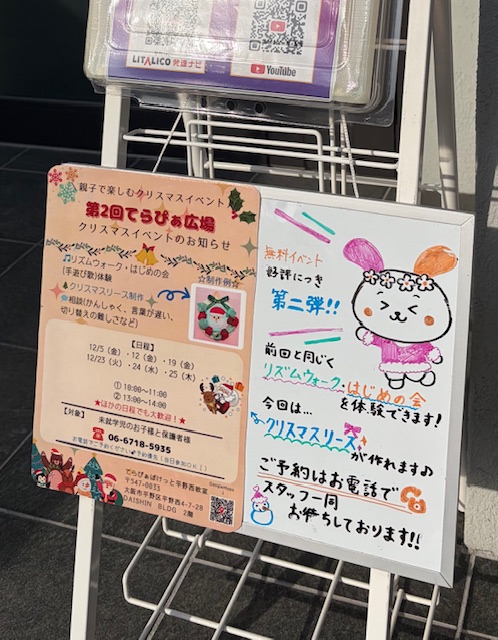 LITALICO発達ナビ
YouTube
親子で楽しむクリスマスイベント
第2回てらぴぁ広場
クリスマスイベントのお知らせ
♪リズムウォーク・はじめの会
(手遊び歌)体験
クリスマスリース制作
相談(かんしゃく、言葉が遅い、
切り替えの難しさなど)
☆制作例☆
【日程】
12/5(金)・12(金)・19(金)
12/23(火)・24(水)・25(木)
①10:00〜11:00
②13:00〜14:00
★ほかの日程でも大歓迎!★
【対象】 未就学児のお子様と保護者様
☎ 06-6718-5935
お電話でご予約ください 予約優先(当日参加OK!)
てらぴぁぽけっと平野西教室
〒547-0033
大阪市平野区平野西4-7-28
DAISHIN BLDG 2階
無料イベント
好評につき
第二弾!!
前回と同じく
リズムウォーク・はじめの会
を体験できます!
今回は…
クリスマスリース
が作れます♪
ご予約はお電話で
スタッフ一同
お待ちしております!!